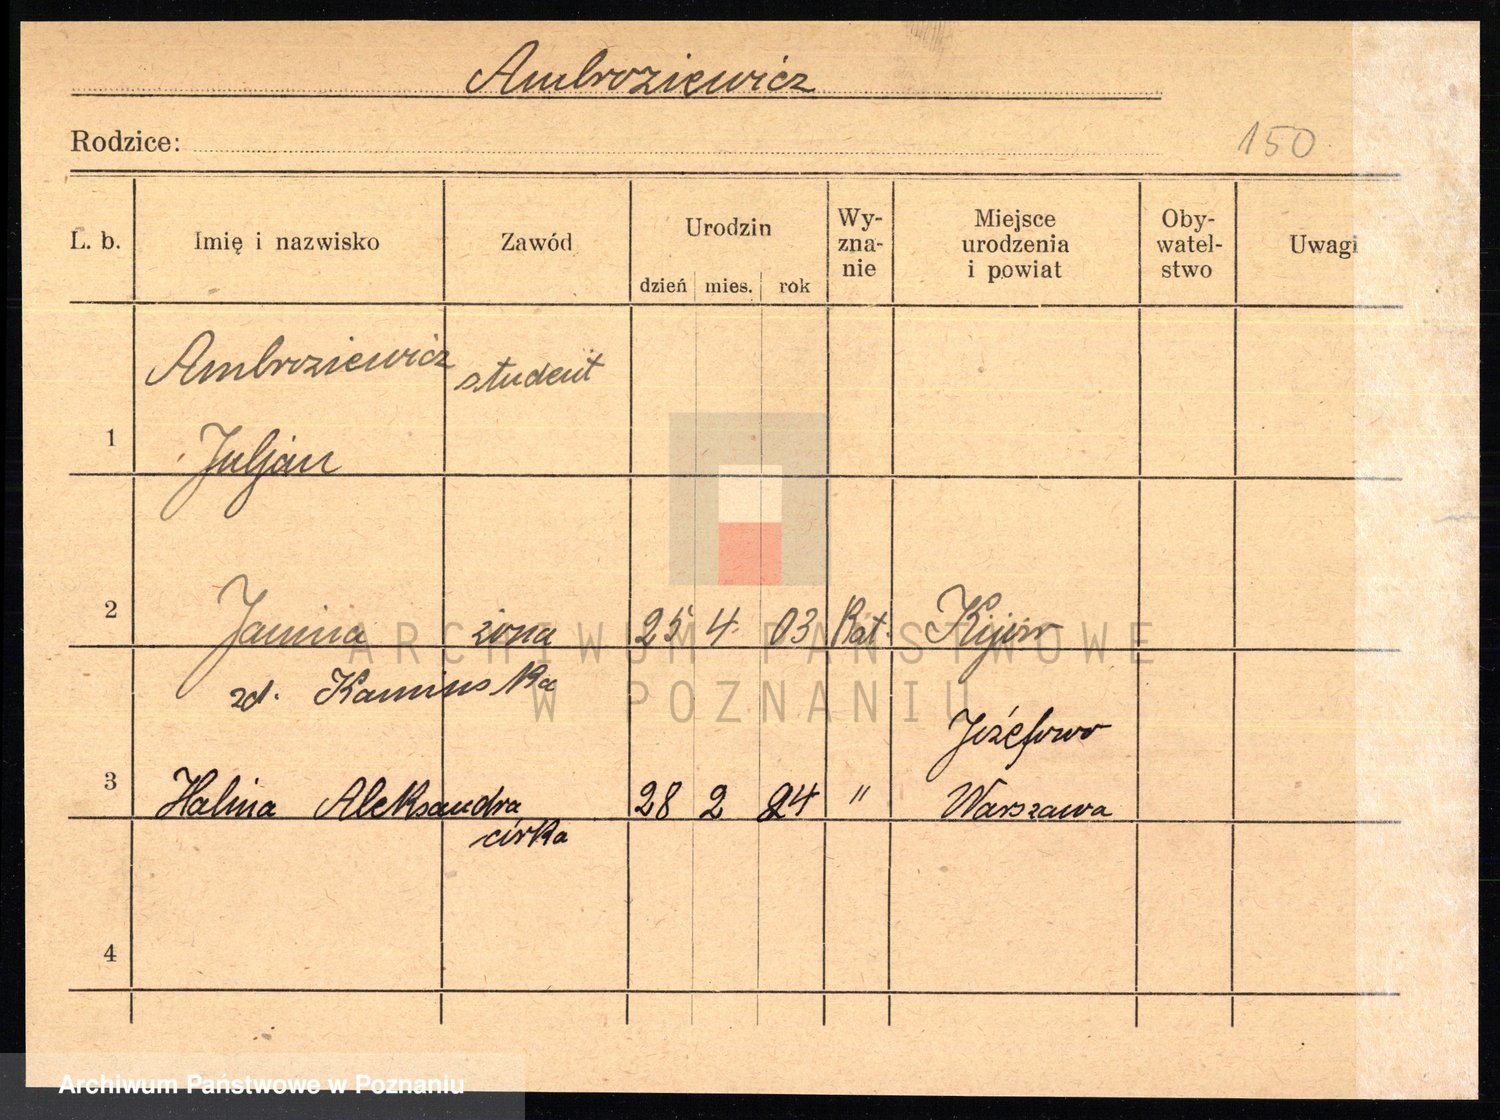 Ambroziewicz
Rodzice:
150
L. b. Imię i nazwisko Zawód Urodzin dzień mies. rok Wy-zna-nie Miejsce urodzenia i powiat Oby-watel-stwo Uwagi
Ambroziewicz student
1 Juljan
2 Janina żona 25 4 03 Kat. Kijów
zd. Kamińska
Józefowo
3 Halina Aleksandra 28 2 24 " Warszawa
córka
4
ARCHIWUM PAŃSTWOWE
W POZNANIU
Archiwum Państwowe w Poznaniu